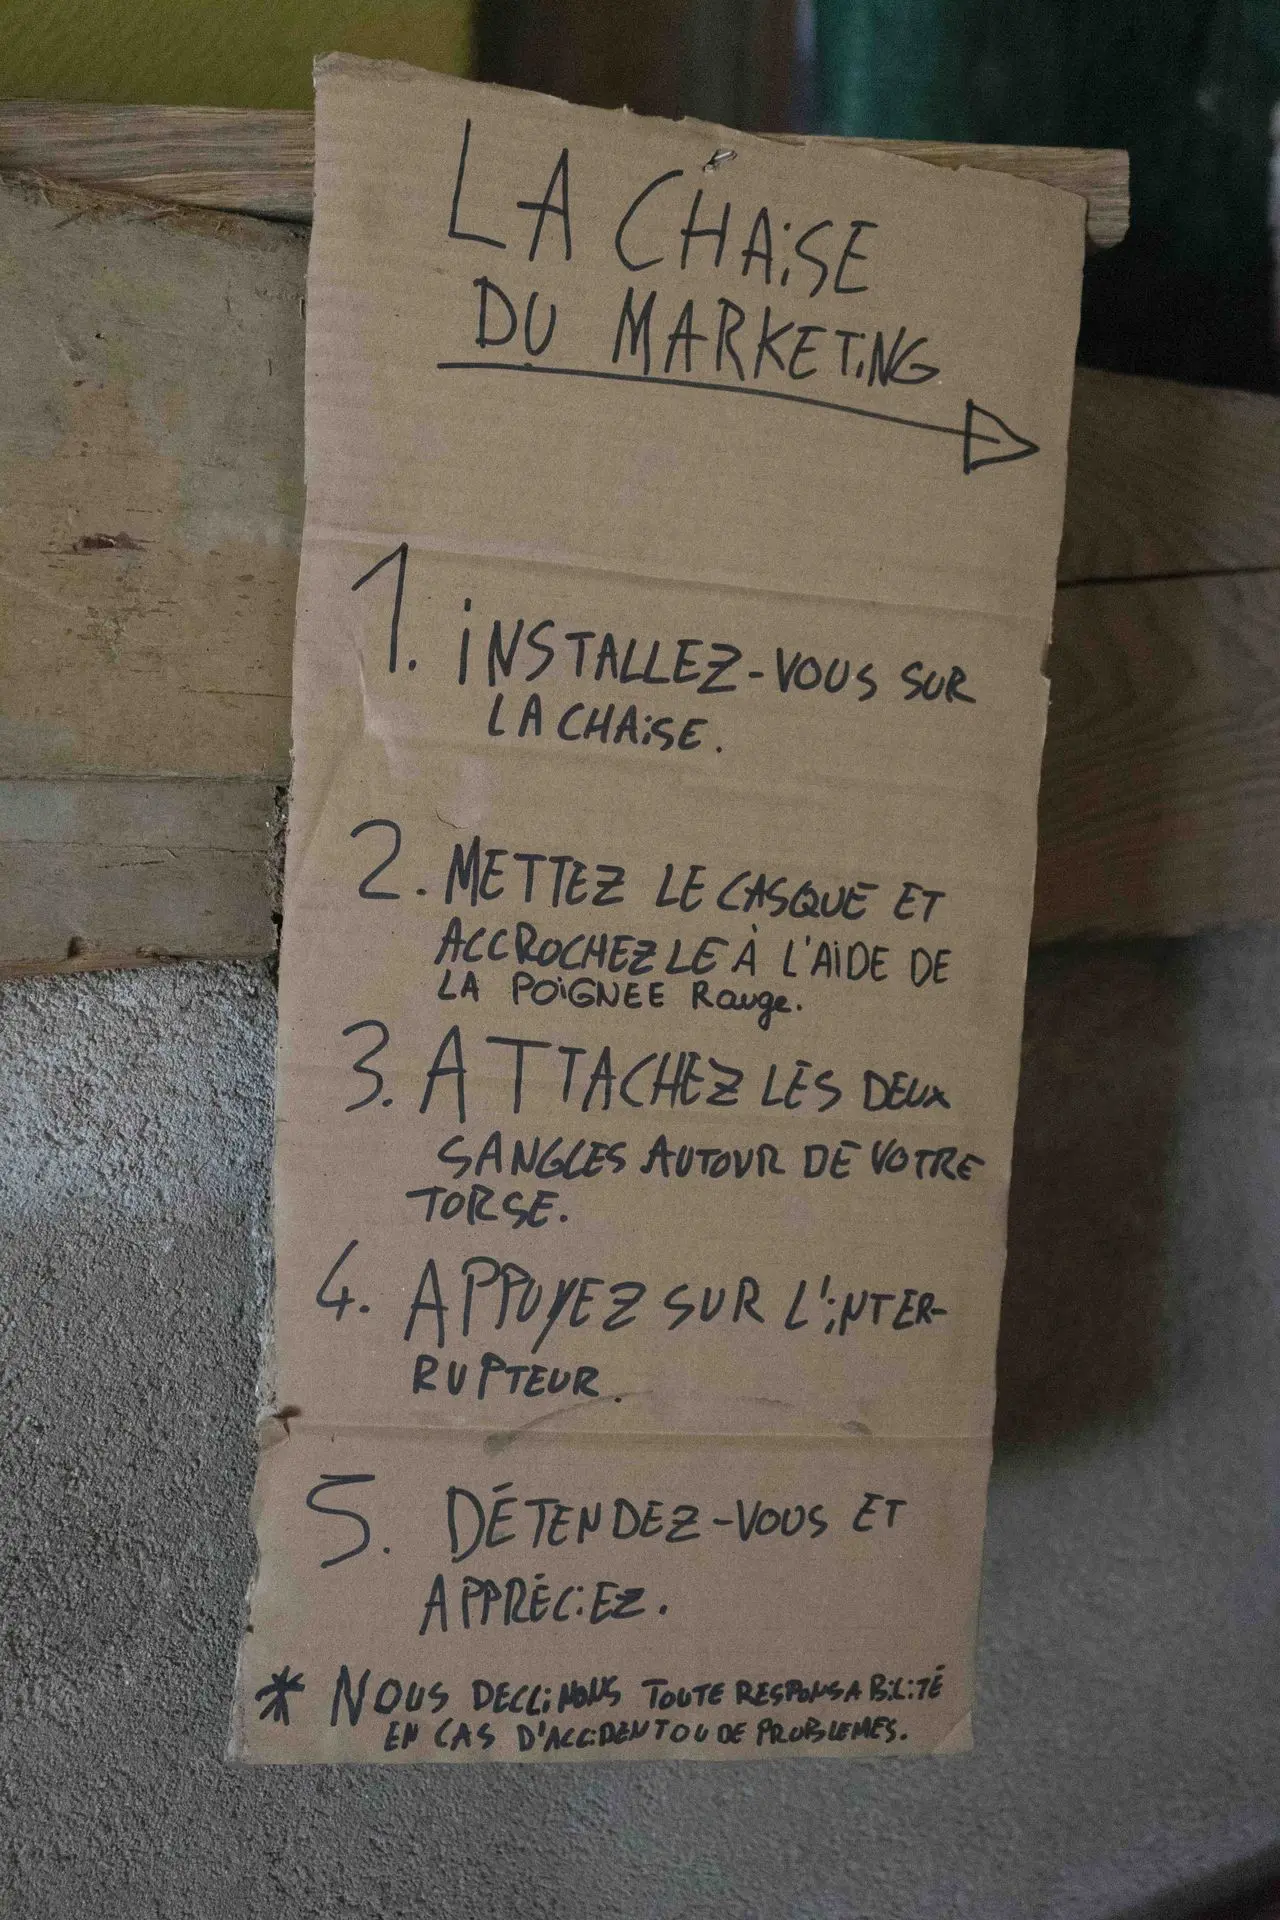 LA CHAiSE
DU MARKETiNG
1. iNSTALLEZ-VOUS SUR
LA CHAiSE.
2. METTEZ LE CASQUE ET
ACCROCHEZ LE À L'AIDE DE
LA POiGNEE Rouge.
3. ATTACHEZ LES DEUX
SANGLES AUTOUR DE VOTRE
TORSE.
4. APPUYEZ SUR L'iNTER-
RUPTEUR.
5. DÉTENDEZ-VOUS ET
APPRÉCiEZ.
* NOUS DECLiNONS TOUTE RESPONSABiLiTÉ
EN CAS D'ACCiDENT OU DE PROBLEMES.